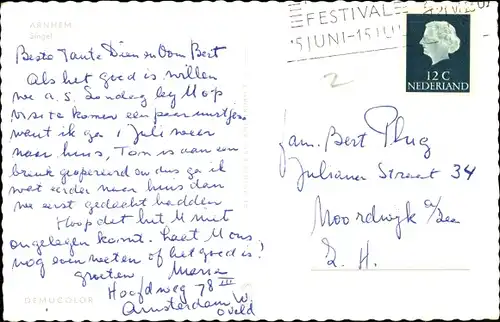 ARNHEM
Singel
Beste Tante Dien en Oom Bert
Als het goed is willen
we a.s. Zondag bij U op
visite komen een paar uurtjes
want ik ga 1 Juli weer
naar huis, Tom is aan een
breuk geopereerd en dus ga ik
wat eerder naar huis dan
we eerst gedacht hadden
Hoop dat het U niet
ongelegen komt. Laat U ons
nog even weten of het goed is?
groeten
Hoofdweg 78 III
Amsterdam W.
DEMUCOLOR
FESTIVAL
5 JUNI-15 JU
2
12 C
NEDERLAND
Fam. Bert Plug
Juliana Straat 34
Noordwijk a/Zee
Z. H.